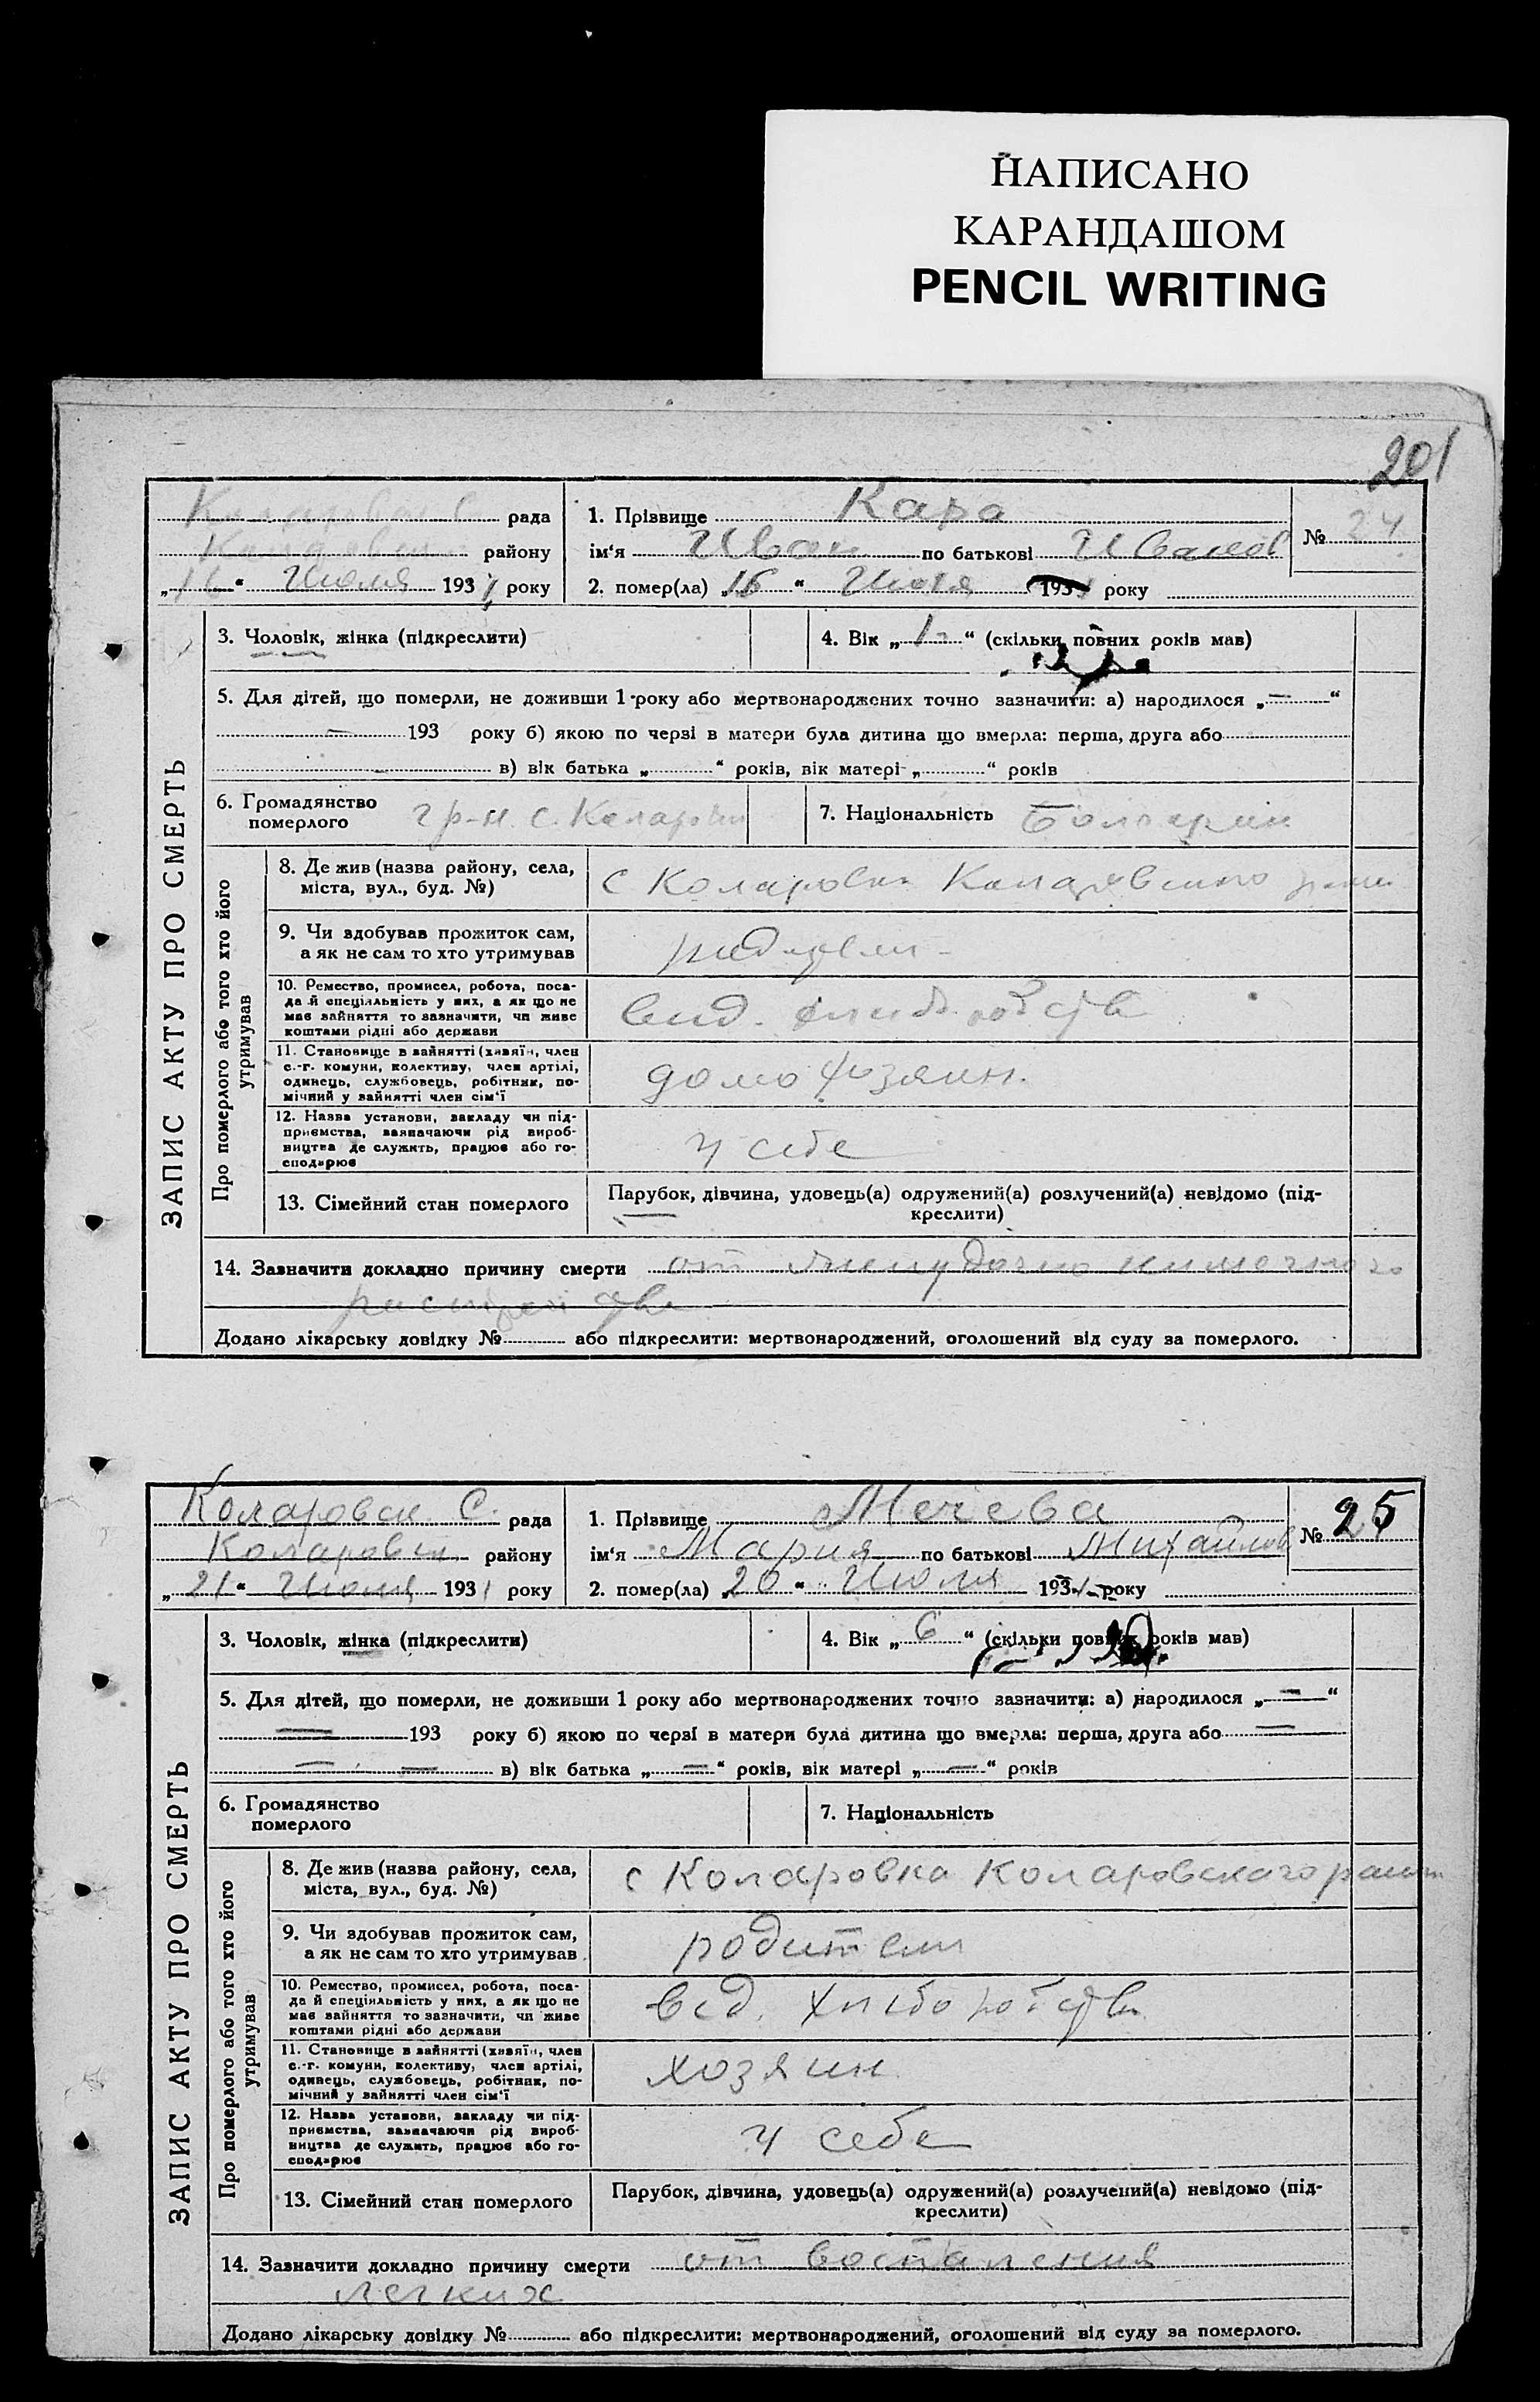 НАПИСАНО
КАРАНДАШОМ
PENCIL WRITING
201
рада
району
„16“ Июля 1931 року
1. Прізвище Кара
ім‘я Иван по батькові Иванов
2. помер(ла) „16“ Июля 1931 року
№ 24
ЗАПИС АКТУ ПРО СМЕРТЬ
3. Чоловік, жінка (підкреслити)
4. Вік „“ (скільки повних років мав)
5. Для дітей, що померли, не доживши 1 року або мертвонароджених точно зазначити: а) народилося „—“
— 193 року б) якою по черзі в матери була дитина що вмерла: перша, друга або
— в) вік батька „“ років, вік матері „“ років
6. Громадянство
померлого
гр-н. с. Коларовки
7. Національність Болгарин
Про померлого або того хто його
утримував
8. Де жив (назва району, села,
міста, вул., буд. №)
с Коларовка Коларовского района
9. Чи здобував прожиток сам,
а як не сам то хто утримував
родители
10. Ремество, промисел, робота, поса-
да й спеціяльність у них, а як що не
має зайняття то зазначити, чи живе
коштами рідні або держави
11. Становище в зайнятті (хазяїн, член
с.-г. комуни, колективу, член артілі,
одинець, службовець, робітник, по-
мічний у зайнятті член сім‘ї
домохозяин.
12. Назва установи, закладу чи під-
приємства, зазначаючи рід вироб-
ництва де служить, працює або го-
сподарює
у себе
13. Сімейний стан померлого
Парубок, дівчина, удовець(а) одружений(а) розлучений(а) невідомо (під-
креслити)
14. Зазначити докладно причину смерти от желудочно кишечного
расстройства
Додано лікарську довідку № або підкреслити: мертвонароджений, оголошений від суду за померлого.
Коларовск. С. рада
Коларовск. району
„21“ Июля 1931 року
1. Прізвище Мечева
ім‘я Мария по батькові Михайлов
2. помер(ла) „20“ Июля 1931 року
№ 25
ЗАПИС АКТУ ПРО СМЕРТЬ
3. Чоловік, жінка (підкреслити)
4. Вік „6“ (скільки повних років мав)
5. Для дітей, що померли, не доживши 1 року або мертвонароджених точно зазначити: а) народилося „—“
— 193 року б) якою по черзі в матери була дитина що вмерла: перша, друга або —
— — в) вік батька „—“ років, вік матері „—“ років
6. Громадянство
померлого
7. Національність
Про померлого або того хто його
утримував
8. Де жив (назва району, села,
міста, вул., буд. №)
с Коларовка Коларовского района
9. Чи здобував прожиток сам,
а як не сам то хто утримував
родители
10. Ремество, промисел, робота, поса-
да й спеціяльність у них, а як що не
має зайняття то зазначити, чи живе
коштами рідні або держави
11. Становище в зайнятті (хазяїн, член
с.-г. комуни, колективу, член артілі,
одинець, службовець, робітник, по-
мічний у зайнятті член сім‘ї
хозяин
12. Назва установи, закладу чи під-
приємства, зазначаючи рід вироб-
ництва де служить, працює або го-
сподарює
у себе
13. Сімейний стан померлого
Парубок, дівчина, удовець(а) одружений(а) розлучений(а) невідомо (під-
креслити)
14. Зазначити докладно причину смерти от воспаления
легких
Додано лікарську довідку № або підкреслити: мертвонароджений, оголошений від суду за померлого.